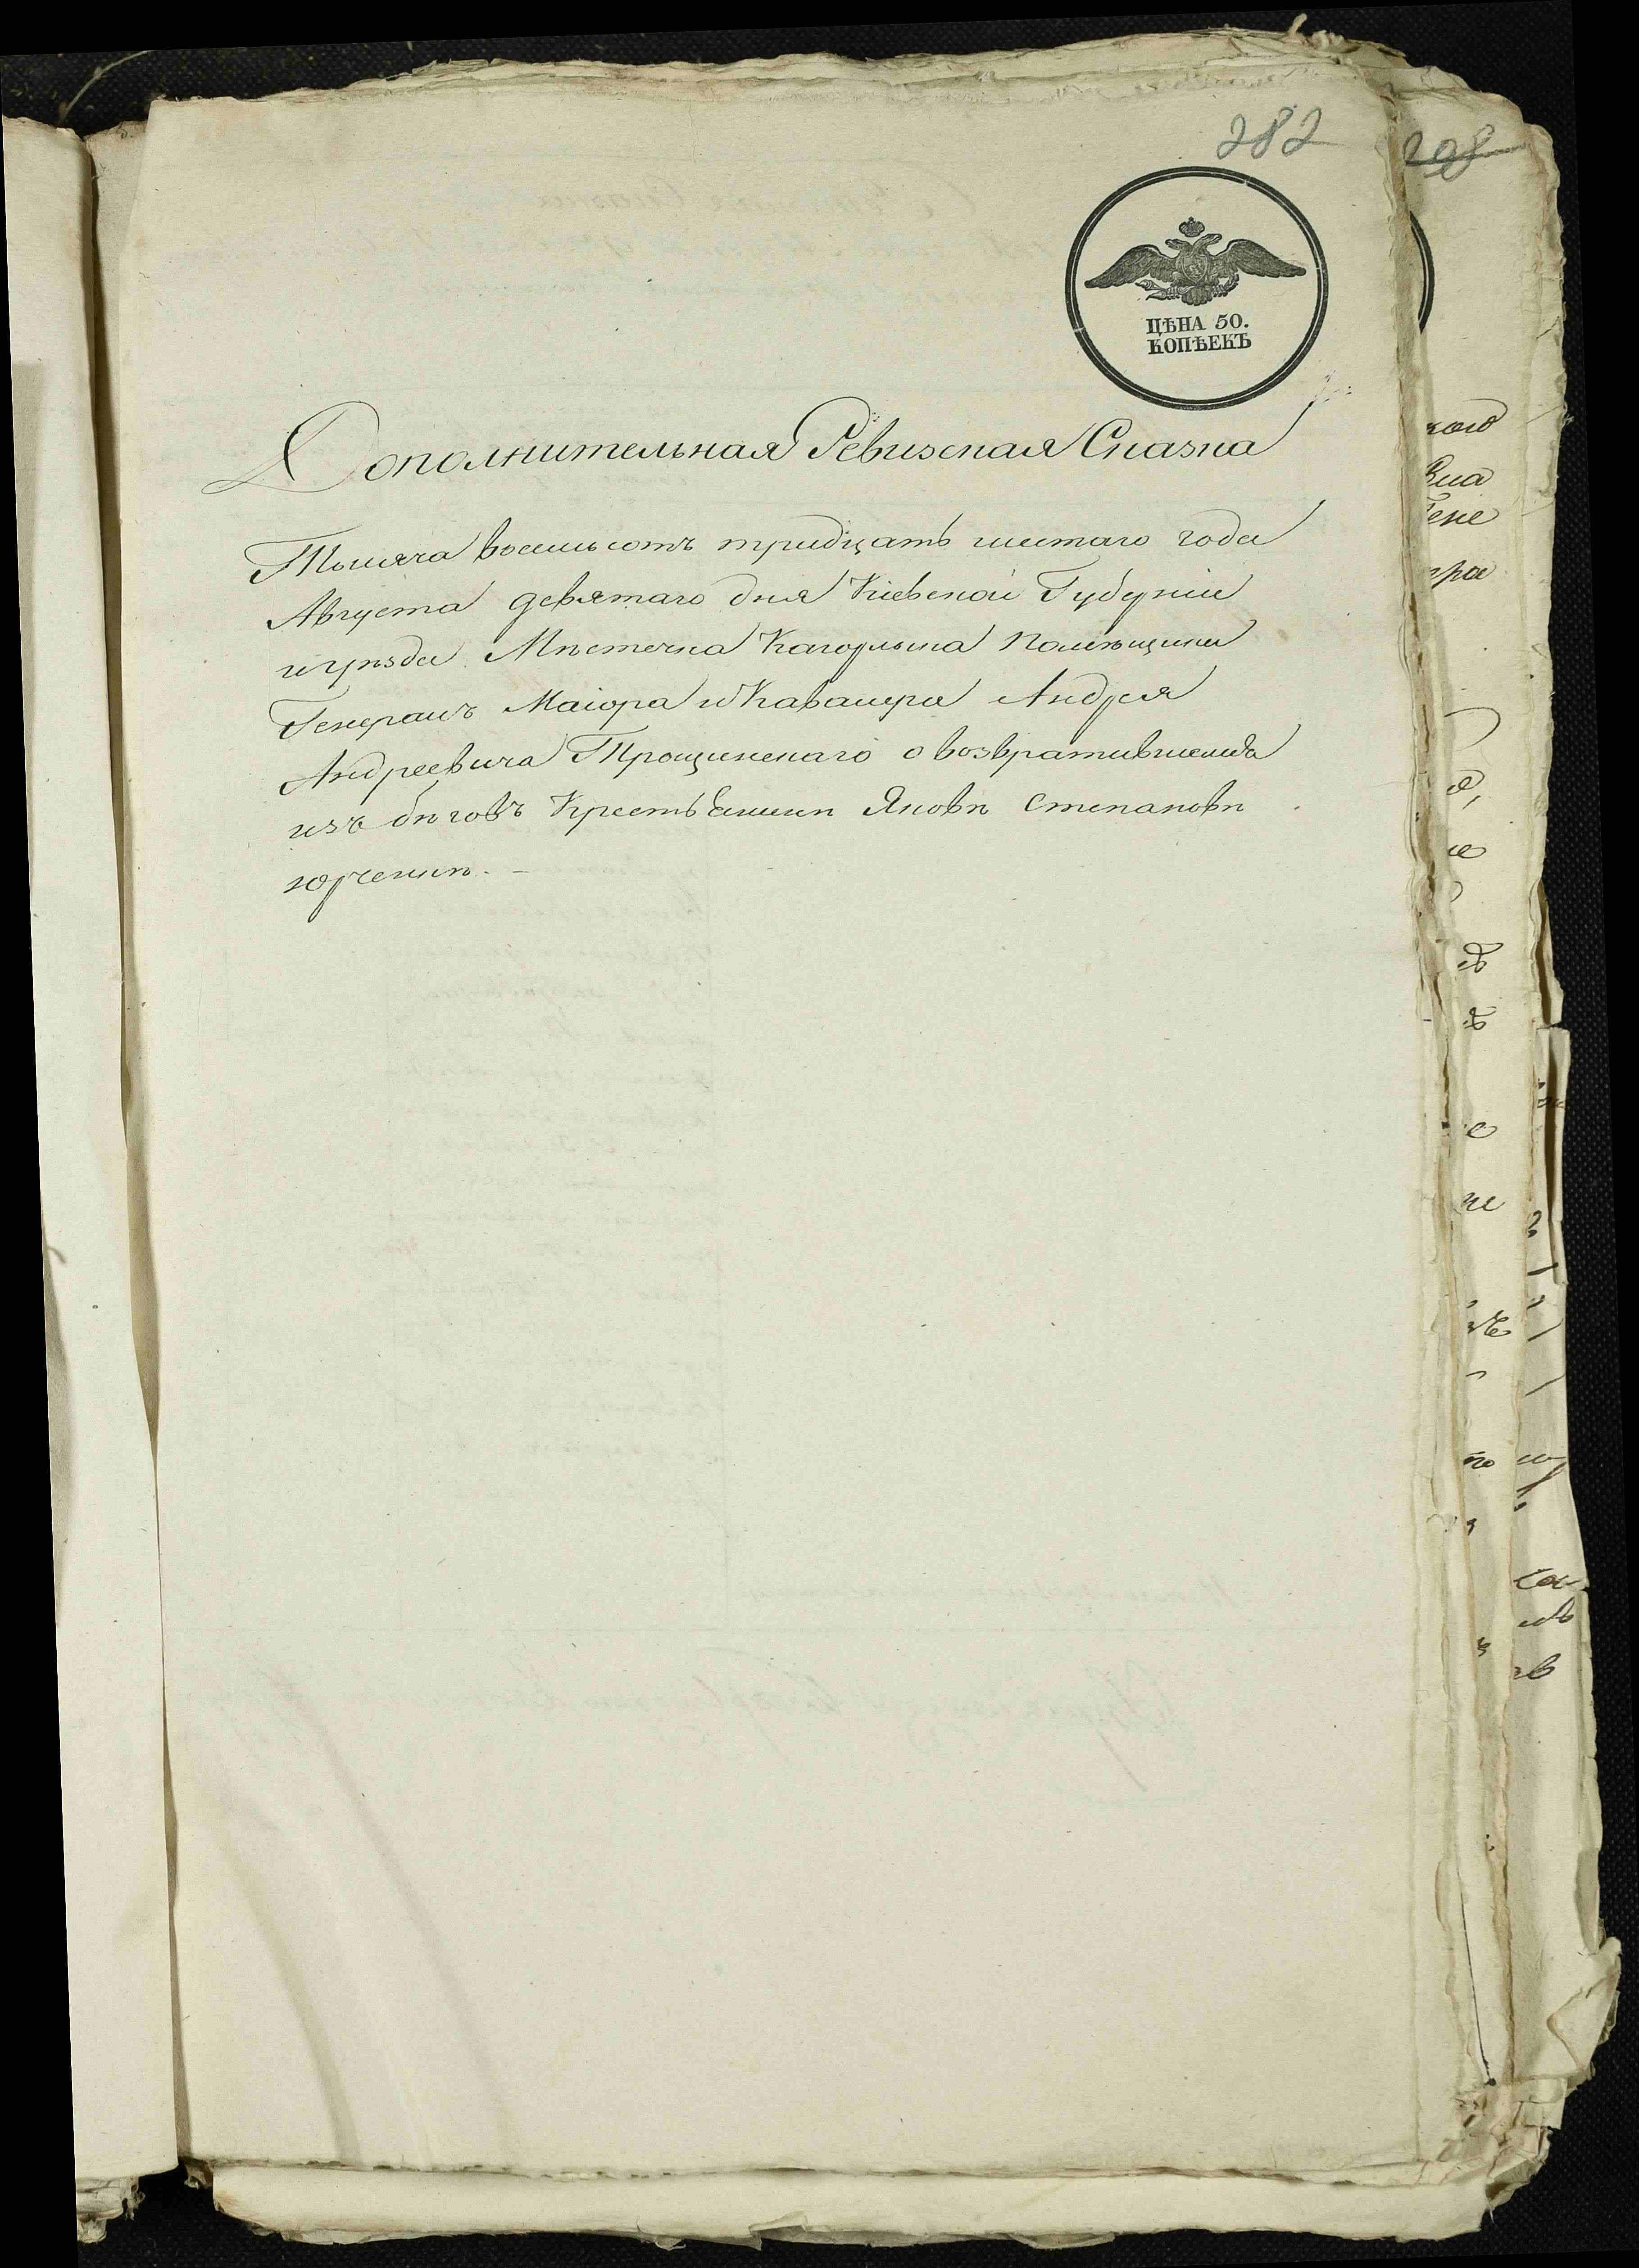 282
208
ЦѢНА 50.
КОПѢЕКЪ
Дополнительная Ревизская Сказка
Тысяча восемьсотъ тридцать шестаго года
Августа девятаго дня Кіевской Губерніи
и уѣзда Мѣстечка Кагорлыка помѣщика
Генералъ Маіора и Кавалера Андрея
Андреевича Трощинскаго о возвратившемся
изъ бѣговъ Крестьянинѣ Яковѣ Степановѣ
Юрченкѣ. –